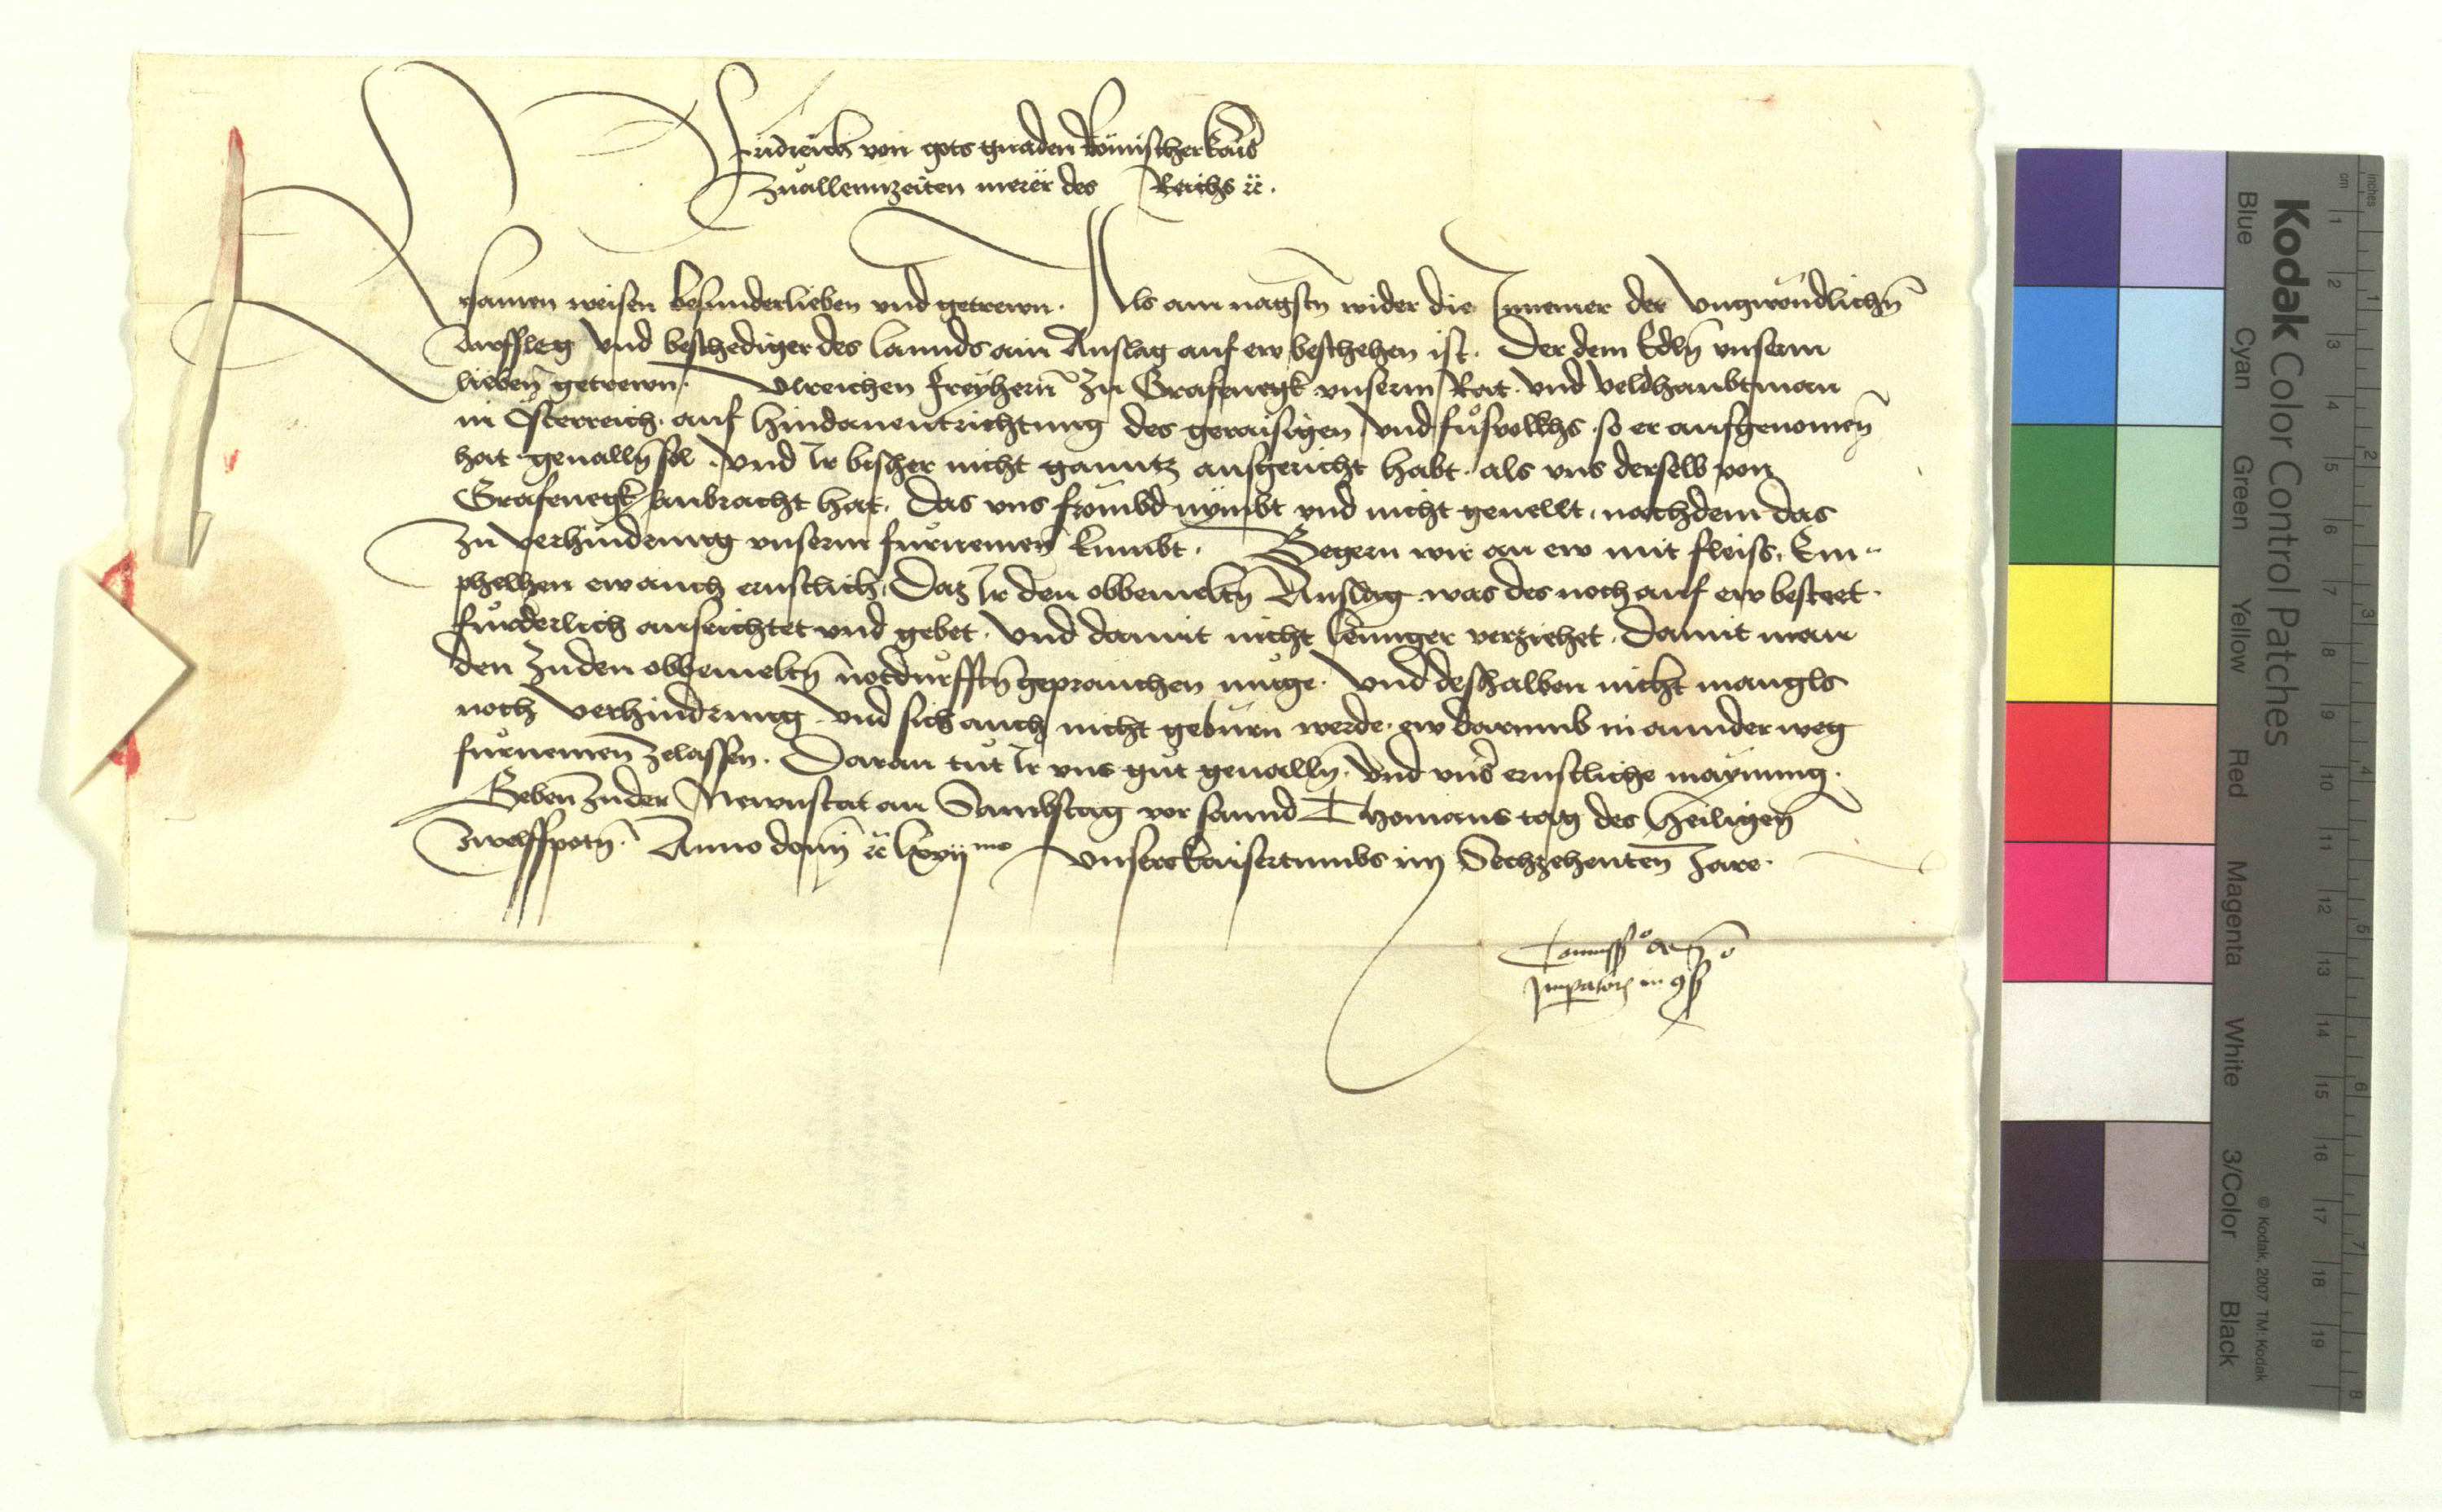 Fridreich von gots gnaden Römischer kaiß
zuallennzeiten merer des Reichs ꝛc.
Ersamen weisen besunderlieben vnd getrewn. Als am nagstn̄ wider die Innemer der vngwöndlichn̄
Aufsleg vnd beschediger des lannds ain Anslag auf ew beschehen ist. Der dem Edln̄ vnserm
lieben̄ getrewn. Vlreichen freyhern̄ zu Grafenegk vnserm Rat vnd veldhaubtman
in Österreich. auf hindanentrichtung des geraisigen vnd fůsvolkhs so er aufgenomen̄
hat geualln̄ sol. vnd Ir bisher nicht ganntz ausgericht habt. als vns derselb von
Grafenegk anbracht hat. Das vns frömbd nymbt vnd nicht geuellt. nachdem das
zu verhindrung vnserm fůrnemen̄ kumbt. Begern wir an ew mit fleiss. Em-
phelhen ew auch ernstlich. Daz Ir den obbemeltn̄ Anslag was des noch auf ew besteet.
fůrderlich ausrichtet vnd gebet. vnd damit nicht lennger verziehet. Damit man
den zu den obbemeltn̄ notdůrfftn̄ geprauchen můge. vnd deshalben nicht mangls
noch verhindrung. vnd sich auch nicht gebůrn werde. ew darumb in annder weg
fůrnemen̄ zelassen. Daran tůt Ir vns gůt geualln̄. vnd vnß ernstliche maynung.
Geben̄ zu der Newnstat an Sambstag vor sannd Thomans tag des heiligen̄
zwelffpotn̄. Anno domī ꝛc lxvijmo vnsers kaisertumbs im Sechzehenten̄ Jare.
Imperatoris in